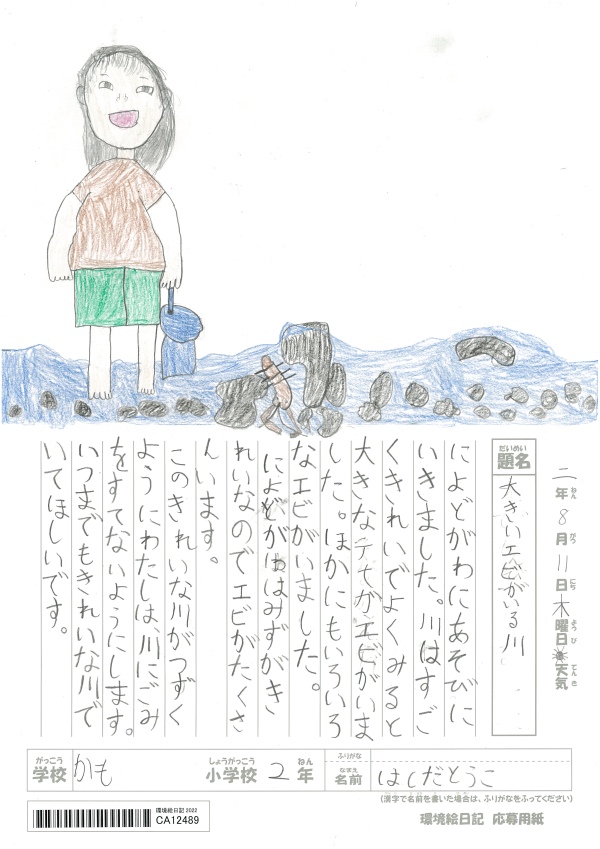 二年8月11日木曜日 天気
ねん がつ にち ようび てんき
だいめい
題名 大きいエビがいる川
によどがわにあそびに
いきました。川はすご
くきれいでよくみると
大きなテナガエビがいま
した。ほかにもいろいろ
なエビがいました。
によどがわはみずがき
れいなのでエビがたくさ
んいます。
このきれいな川がつずく
ようにわたしは、川にごみ
をすてないようにします。
いつまでもきれいな川で
いてほしいです。
がっこう しょうがっこう ねん ふりがな
学校 かも 小学校 2年
なまえ
名前 はしだとうこ
(漢字で名前を書いた場合は、ふりがなをふってください)
環境絵日記 応募用紙
環境絵日記 2022
CA12489